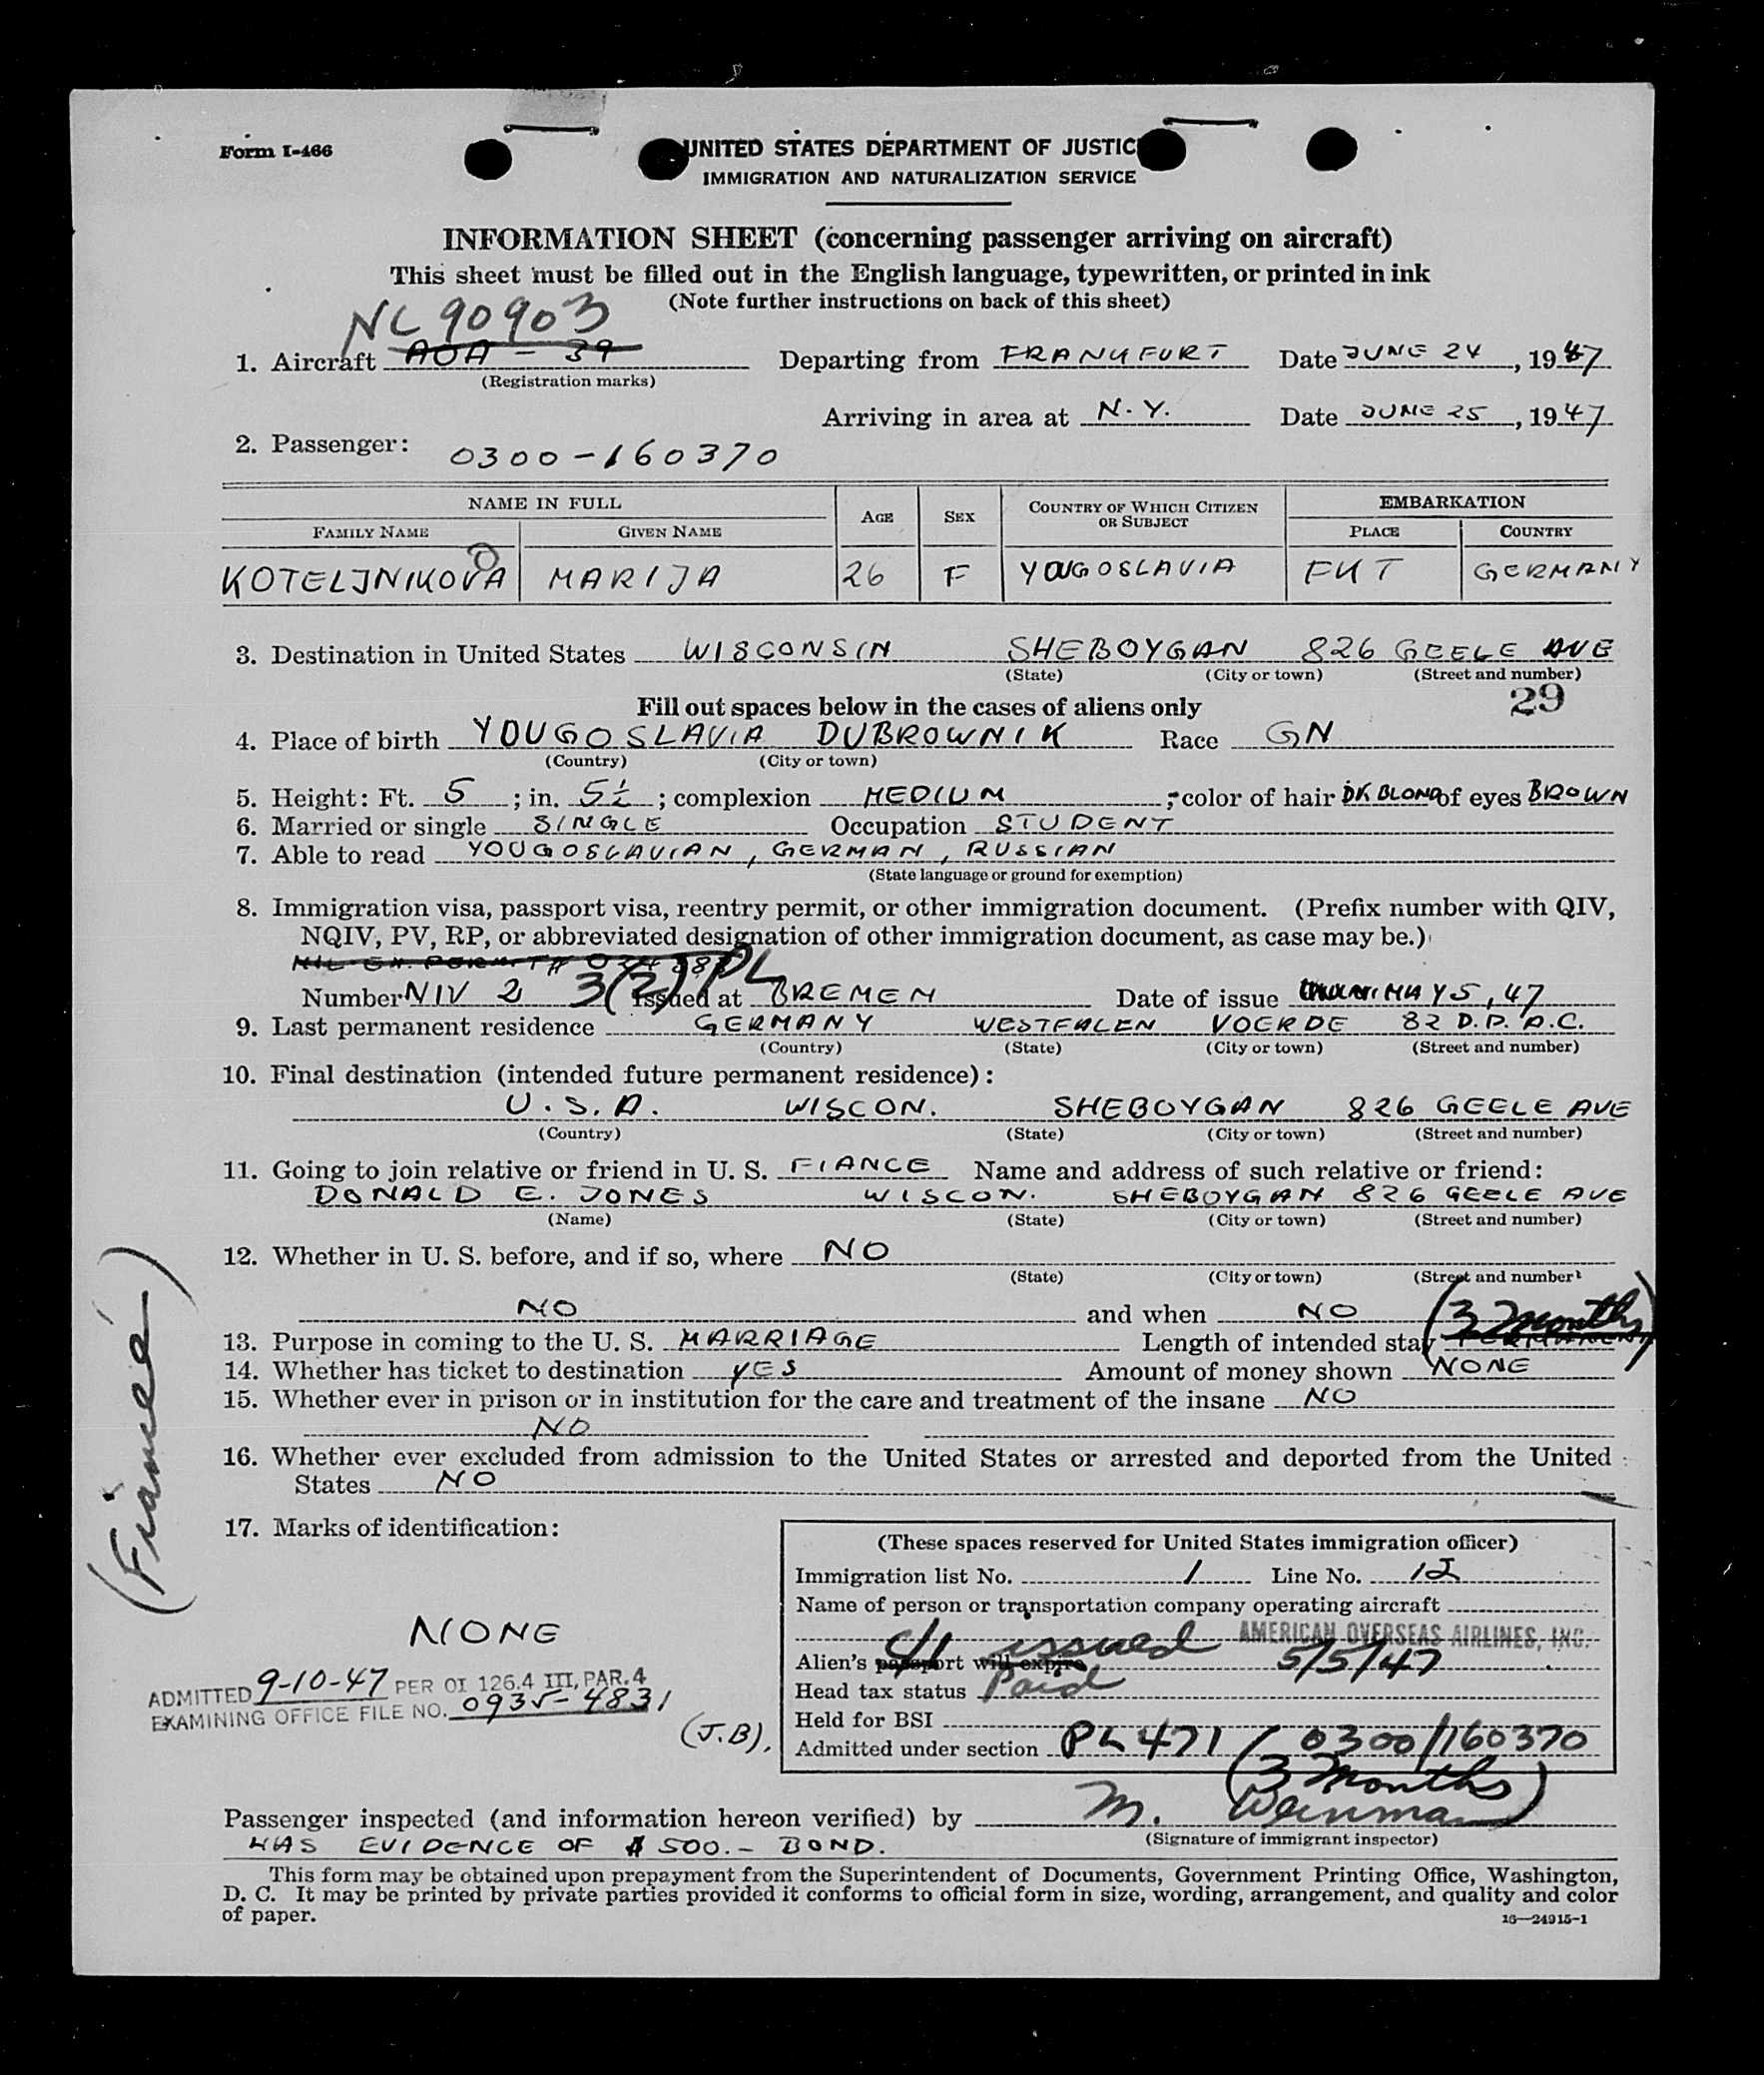 Form I-466
UNITED STATES DEPARTMENT OF JUSTIC
IMMIGRATION AND NATURALIZATION SERVICE
INFORMATION SHEET (concerning passenger arriving on aircraft)
This sheet must be filled out in the English language, typewritten, or printed in ink
(Note further instructions on back of this sheet)
NC 90903
1. Aircraft AOA - 39 Departing from FRANKFURT Date JUNE 24, 1947
(Registration marks)
Arriving in area at N.Y. Date JUNE 25, 1947
2. Passenger: 0300-160370
NAME IN FULL AGE SEX COUNTRY OF WHICH CITIZEN OR SUBJECT EMBARKATION
FAMILY NAME GIVEN NAME PLACE COUNTRY
KOTELJNIKOVA MARIJA 26 F YOUGOSLAVIA FKT GERMANY
3. Destination in United States WISCONSIN SHEBOYGAN 826 GEELE AVE
(State) (City or town) (Street and number)
Fill out spaces below in the cases of aliens only 29
4. Place of birth YOUGOSLAVIA DUBROWNIK Race GN
(Country) (City or town)
5. Height: Ft. 5; in. 5½; complexion MEDIUM; color of hair DK BLOND of eyes BROWN
6. Married or single SINGLE Occupation STUDENT
7. Able to read YOUGOSLAVIAN, GERMAN, RUSSIAN
(State language or ground for exemption)
8. Immigration visa, passport visa, reentry permit, or other immigration document. (Prefix number with QIV,
NQIV, PV, RP, or abbreviated designation of other immigration document, as case may be.)
Number NIV 2 3(2) PL Issued at BREMEN Date of issue MAY 5, 47
9. Last permanent residence GERMANY WESTFALEN VOERDE 82 D.P. A.C.
(Country) (State) (City or town) (Street and number)
10. Final destination (intended future permanent residence):
U.S.A. WISCON. SHEBOYGAN 826 GEELE AVE
(Country) (State) (City or town) (Street and number)
11. Going to join relative or friend in U. S. FIANCE Name and address of such relative or friend:
DONALD E. JONES WISCON. SHEBOYGAN 826 GEELE AVE
(Name) (State) (City or town) (Street and number)
12. Whether in U. S. before, and if so, where NO
(State) (City or town) (Street and number)
NO and when NO (3 months)
13. Purpose in coming to the U. S. MARRIAGE Length of intended stay PERMANENT
14. Whether has ticket to destination YES Amount of money shown NONE
15. Whether ever in prison or in institution for the care and treatment of the insane NO
NO
16. Whether ever excluded from admission to the United States or arrested and deported from the United
States NO
(Fianceé)
17. Marks of identification:
NONE
ADMITTED 9-10-47 PER OI 126.4 III, PAR. 4
EXAMINING OFFICE FILE NO. 0935-4831
(J.B),
(These spaces reserved for United States immigration officer)
Immigration list No. 1 Line No. 12
Name of person or transportation company operating aircraft
AMERICAN OVERSEAS AIRLINES, INC.
Alien's passport will expire issued 5/5/47
Head tax status Paid
Held for BSI
Admitted under section PL 471 / 0300/160370
(3 Months)
Passenger inspected (and information hereon verified) by M. Weinman
(Signature of immigrant inspector)
HAS EVIDENCE OF $ 500.- BOND.
This form may be obtained upon prepayment from the Superintendent of Documents, Government Printing Office, Washington,
D. C. It may be printed by private parties provided it conforms to official form in size, wording, arrangement, and quality and color
of paper.
16—24915-1